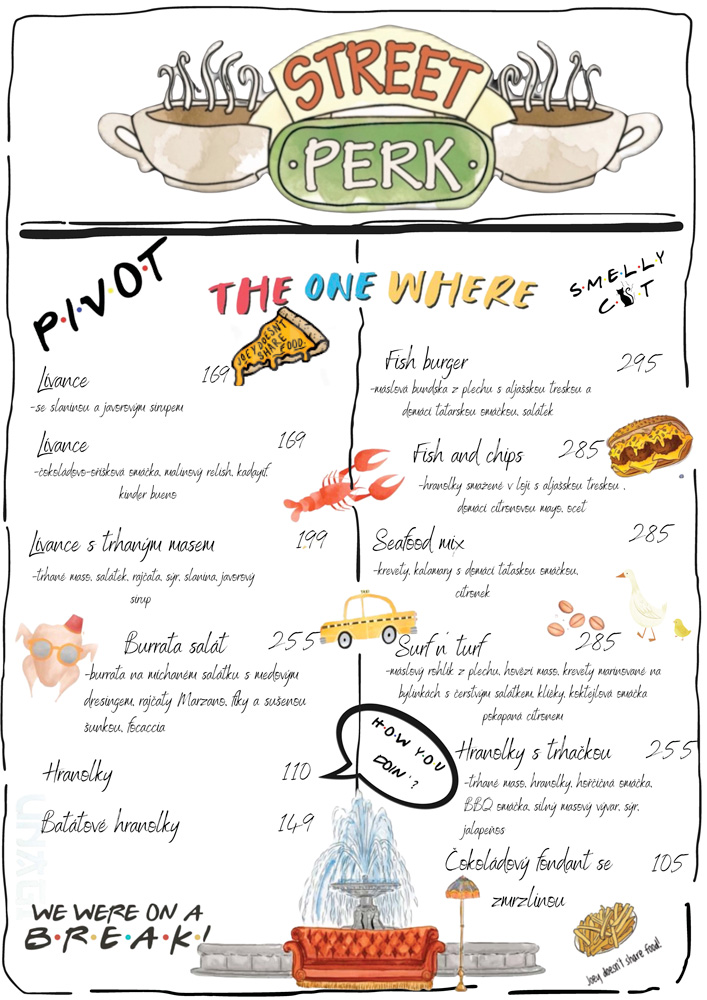 STREET
PERK
P·I·V·O·T
THE ONE WHERE
S·M·E·L·L·Y
C T
JOEY DOESN'T
SHARE
FOOD
Lívance 169
-se slaninou a javorovým sirupem
Lívance 169
-čokoládovo-oříšková omáčka, malinový relish, kadayif,
kinder bueno
Lívance s trhaným masem 199
-trhané maso, salátek, rajčata, sýr, slanina, javorový
sirup
Burrata salát 255
-burrata na míchaném salátku s medovým
dresingem, rajčaty Marzano, fíky a sušenou
šunkou, focaccia
Hranolky 110
Batátové hranolky 149
WE WERE ON A
B·R·E·A·K!
Fish burger 295
-máslová bundska z plechu s aljašskou treskou a
domácí tatarskou omáčkou, salátek
Fish and chips 285
-hranolky smažené v loji s aljašskou treskou ,
domácí citronovou mayo, ocet
Seafood mix 285
-krevety, kalamary s domácí tataskou omáčkou,
citronek
Surf n' turf 285
-máslový rohlík z plechu, hovězí maso, krevety marinované na
bylinkách s čerstvým salátkem, klíčky, koktejlová omáčka
pokapaná citronem
H·O·W Y·O·U
DOIN'?
Hranolky s trhačkou 255
-trhané maso, hranolky, hořčičná omáčka,
BBQ omáčka, silný masový vývar, sýr,
jalapeños
Čokoládový fondant se 105
zmrzlinou
Joey doesn't share food!